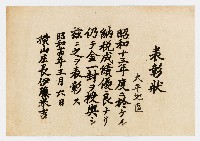 表彰状
大平地區
昭和十三年度ニ於ケル
納税成績優良ナリ
仍テ金一封ヲ授與シ
茲ニ之ヲ表彰ス
昭和十四年三月六日
横山庄長伊藤米吉